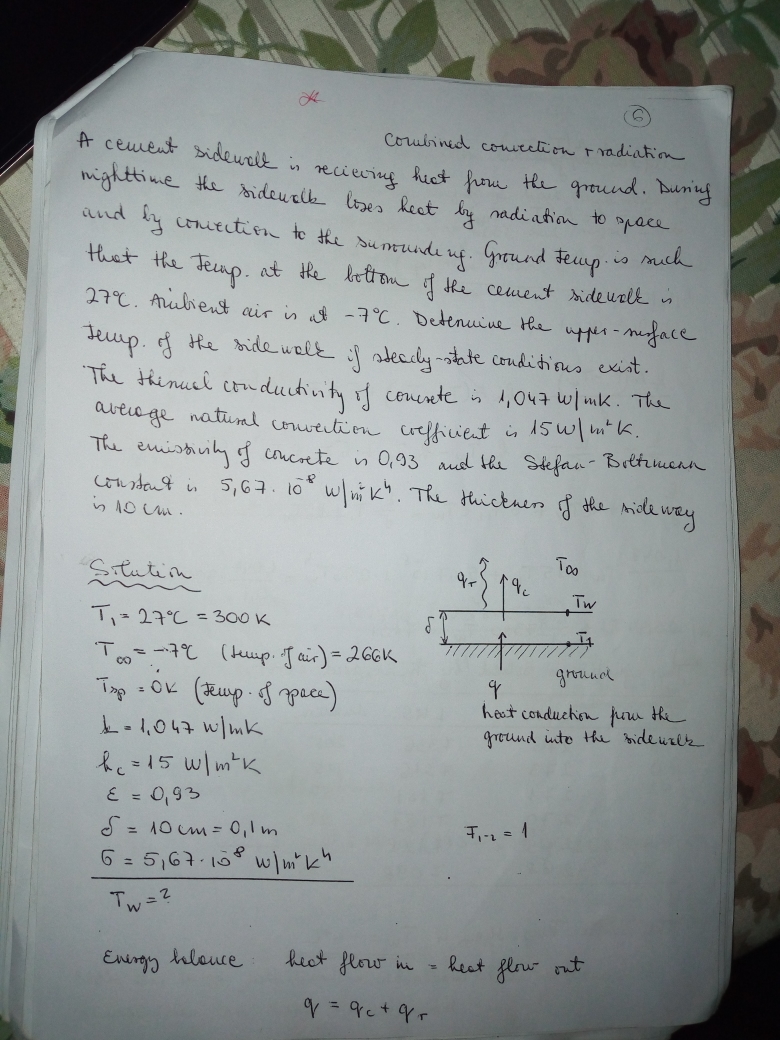 6
Combined convection + radiation
A cement sidewalk is recieving heat from the ground. During
nighttime the sidewalk loses heat by radiation to space
and by convection to the surrounding. Ground temp. is such
that the temp. at the bottom of the cement sidewalk is
27°C. Ambient air is at -7°C. Determine the upper-surface
temp. of the sidewalk if steady-state conditions exist.
The thermal conductivity of concrete is 1,047 W/mK. The
average natural convection coefficient is 15 W/m²K.
The emissivity of concrete is 0,93 and the Stefan-Boltzmann
constant is 5,67·10⁻⁸ W/m²K⁴. The thickness of the sideway
is 10 cm.
Solution
T₁ = 27°C = 300 K
T∞ = -7°C (temp. of air) = 266K
Tsp = 0K (temp. of space)
k = 1,047 W/mK
hc = 15 W/m²K
ε = 0,93
δ = 10 cm = 0,1m
σ = 5,67·10⁻⁸ W/m²K⁴
Tw = ?
qr qc T∞
Tw
δ
T₁
q ground
heat conduction from the
ground into the sidewalk
F₁₋₂ = 1
Energy balance: heat flow in = heat flow out
q = qc + qr